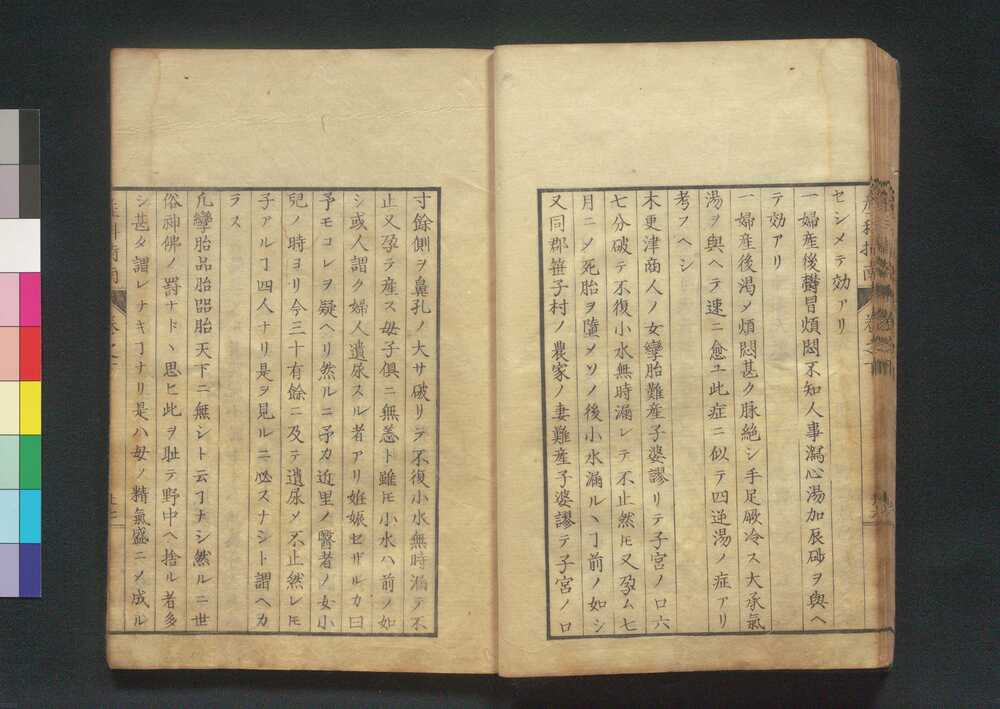 セシメテ効アリ
一婦産後欝冒煩悶不知人事瀉心湯加辰砂ヲ與ヘ
テ効アリ
一婦産後渇メ煩悶甚ク脉絶シ手足厥冷ス大承氣
湯ヲ與ヘテ速ニ愈ユ此症ニ似テ四逆湯ノ症アリ
考フヘシ
木更津商人ノ女孿胎難産子婆謬リテ子宮ノ口六
七分破テ不復小水無時漏レテ不止然𪜈又孕ム七
月ニメ死胎ヲ墮メソノ後小水漏ルヽヿ前ノ如シ
又同郡笹子村ノ農家ノ妻難産子婆謬テ子宮ノ口
寸餘側ヲ鼻孔ノ大サ破リテ不復小水無時漏テ不
止又孕テ産ス母子倶ニ無恙ト雖𪜈小水ハ前ノ如
シ或人謂ク婦人遺尿スル者アリ姙娠セザルカ曰
予モコレヲ疑ヘリ然ルニ予カ近里ノ醫者ノ女小
兒ノ時ヨリ今三十有餘ニ及テ遺尿メ不止然レ𪜈
子アルヿ四人ナリ是ヲ見ルニ必スナシト謂ヘカ
ラス
凢孿胎品胎㗊胎天下ニ無シト云ヿナシ然ルニ世
俗神佛ノ罸ナドヽ思ヒ此ヲ耻テ野中ヘ捨ル者多
シ甚タ謂レナキヿナリ是ハ母ノ精氣盛ニメ成ル